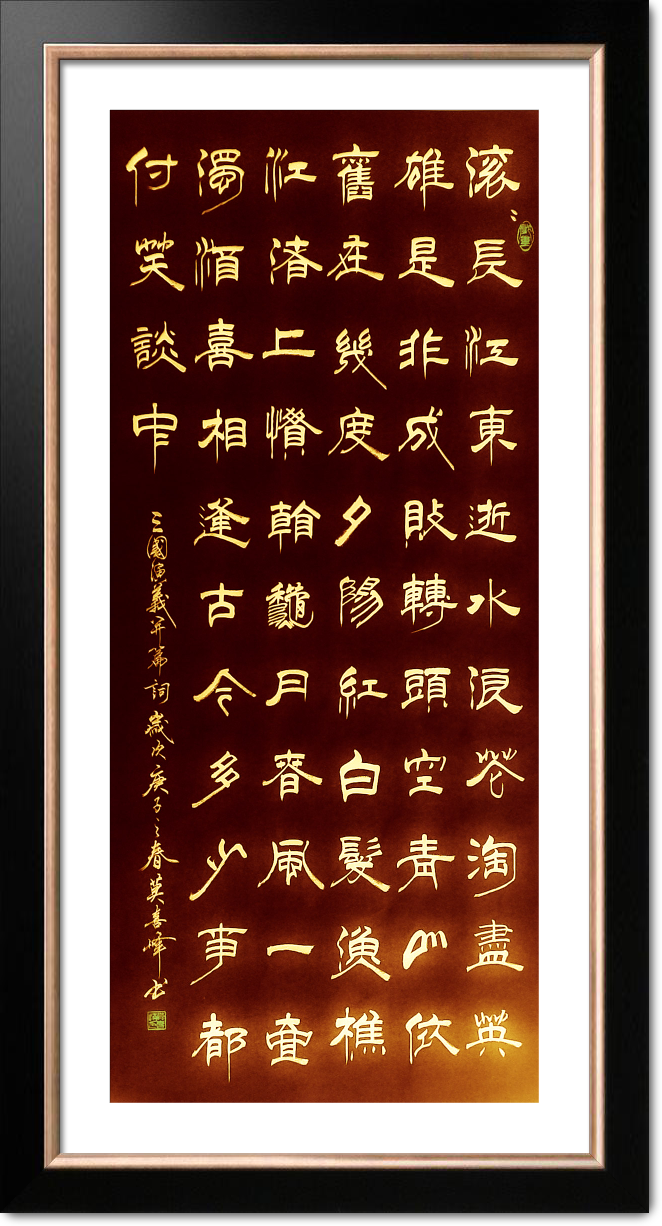 滚〻長江東逝水浪花淘盡英
雄是非成敗轉頭空青山依
舊在幾度夕陽紅白髮漁樵
江渚上慣看龝月春風一壺
濁酒喜相逢古今多少事都
付笑談中
三國演義开篇詞歲次庚子之春英喜峰书